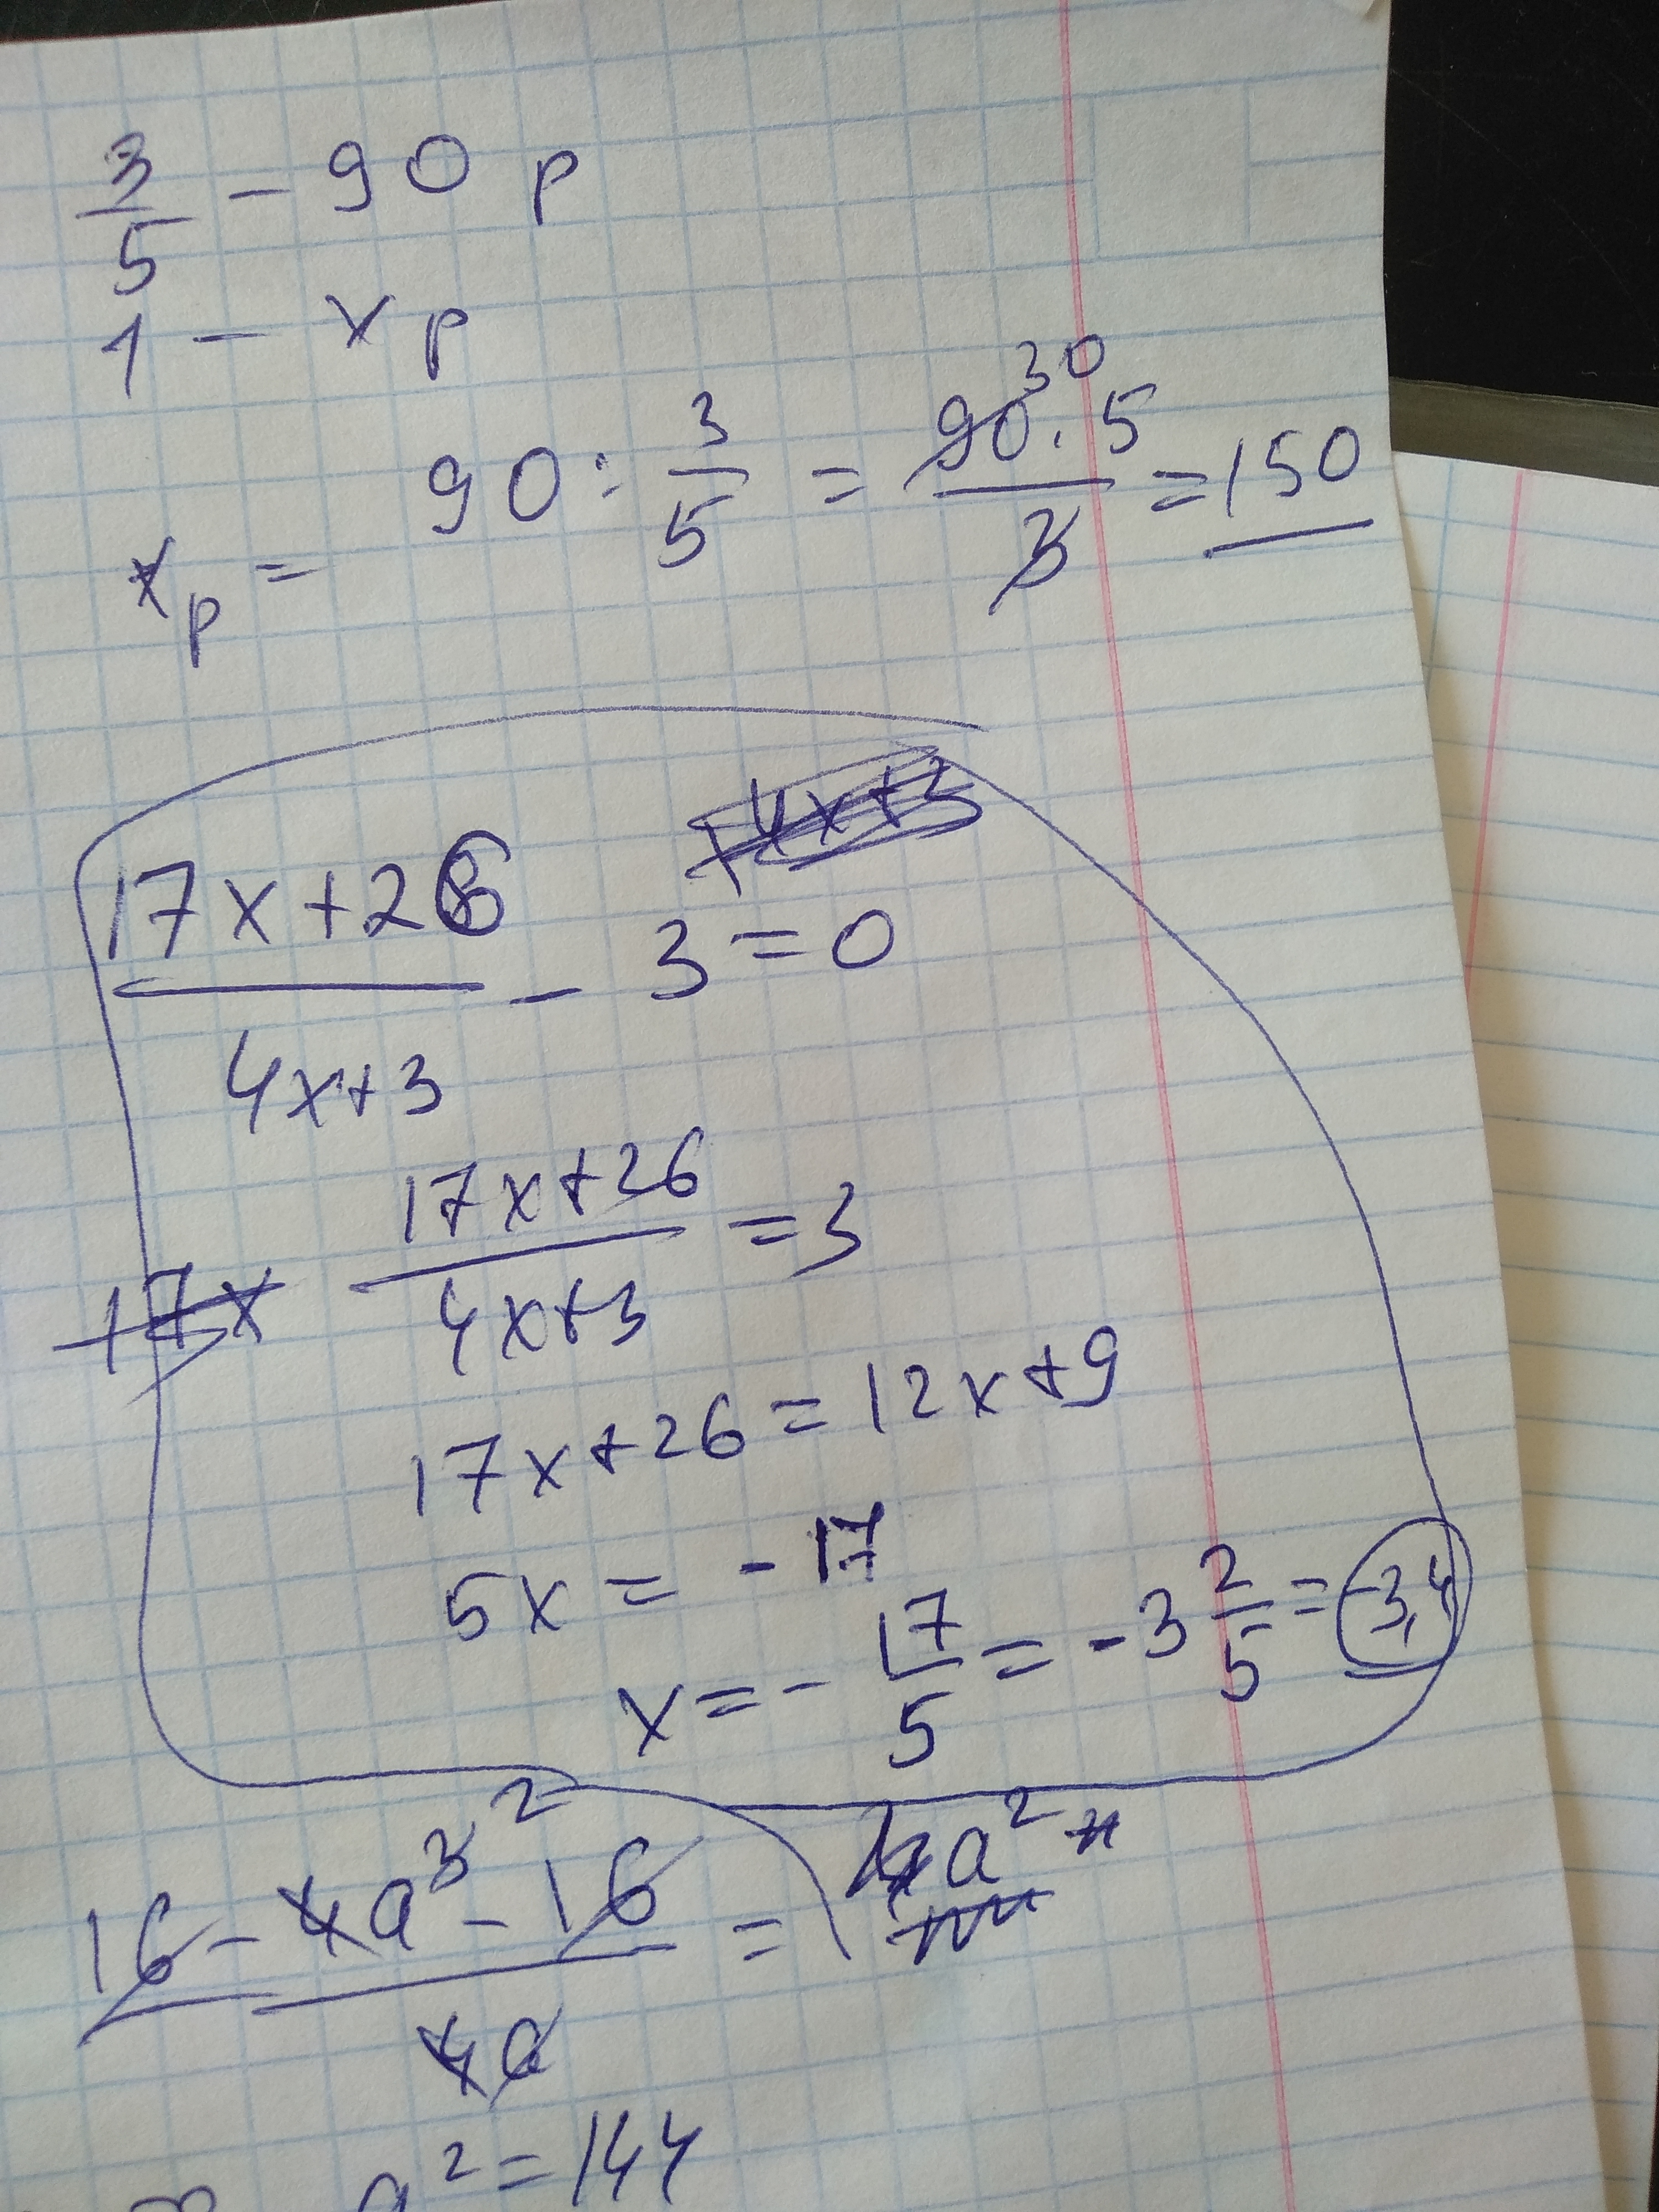 3/5 - 90 р
1 - x р
x р = 90 : 3/5 = 90 · 5 / 3 = 150
30
17x+26 / 4x+3 - 3 = 0
17x
17x+26 / 4x+3 = 3
17x+26 = 12x+9
5x = -17
x = - 17/5 = -3 2/5 = -3,4
16 - 4a³ - 16 / 4a = a²
2
a² = 144